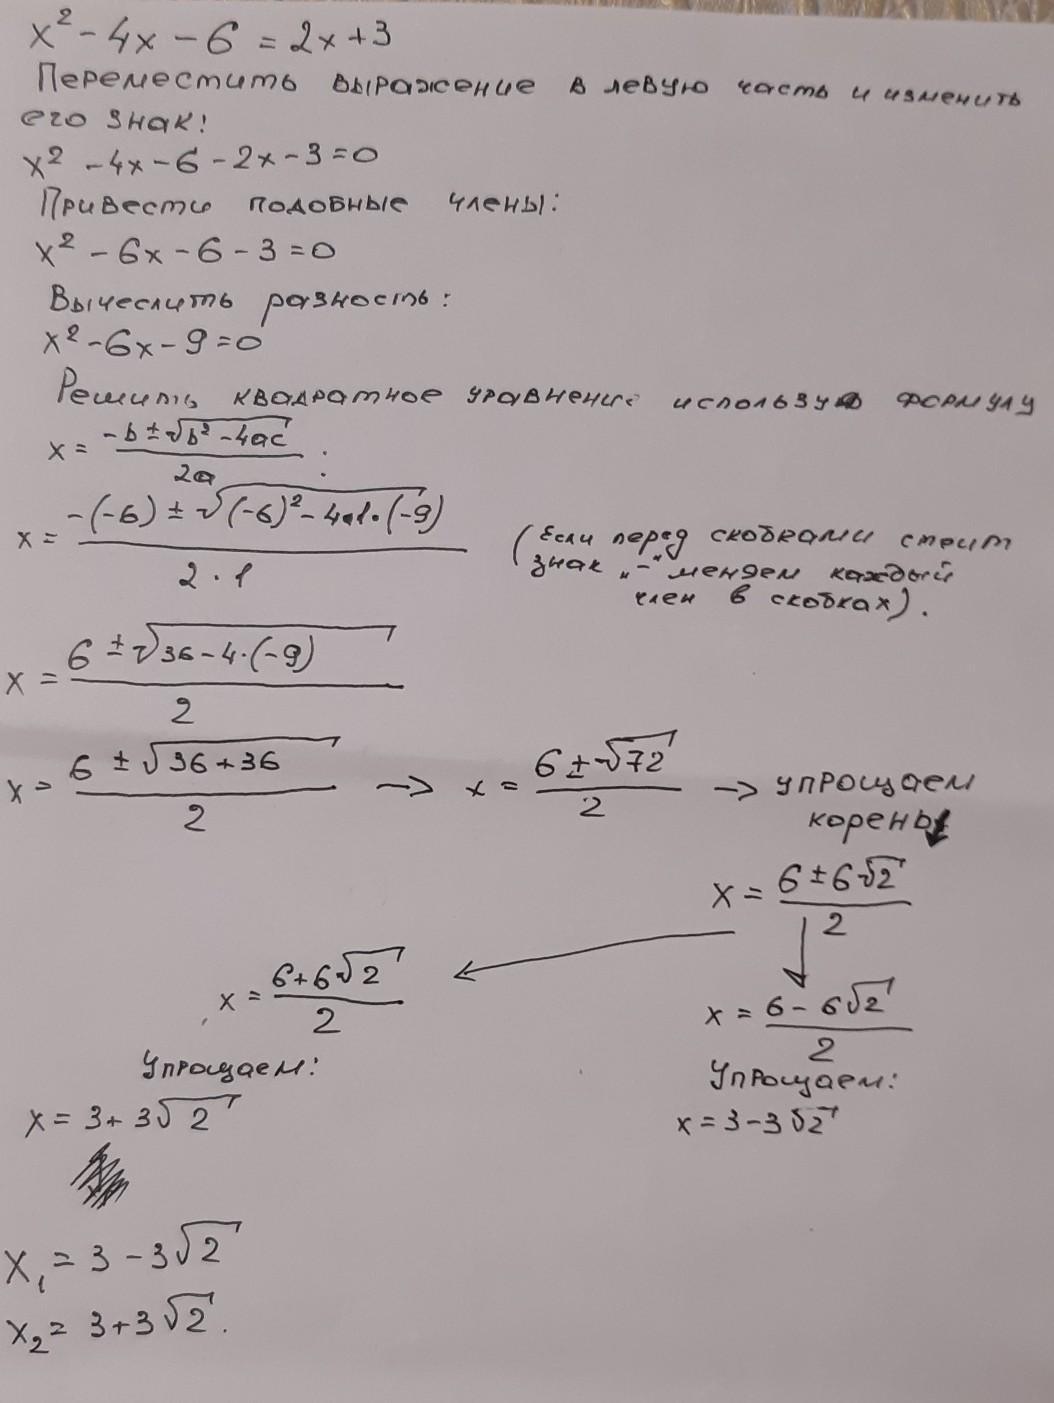 x² - 4x - 6 = 2x + 3
Переместить выражение в левую часть и изменить
его знак:
x² - 4x - 6 - 2x - 3 = 0
Привести подобные члены:
x² - 6x - 6 - 3 = 0
Вычеслить разность:
x² - 6x - 9 = 0
Решить квадратное уравнение используя формулу
x = (-b ± √(b² - 4ac)) / 2a :
x = (-(-6) ± √((-6)² - 4·1·(-9))) / (2 · 1)
(Если перед скобками стоит
знак „-“ меняем каждый
член в скобках).
x = (6 ± √(36 - 4·(-9))) / 2
x = (6 ± √(36 + 36)) / 2 → x = (6 ± √72) / 2 → упрощаем
корень
x = (6 ± 6√2) / 2
x = (6 + 6√2) / 2
x = (6 - 6√2) / 2
Упрощаем:
Упрощаем:
x = 3 + 3√2
x = 3 - 3√2
x₁ = 3 - 3√2
x₂ = 3 + 3√2.